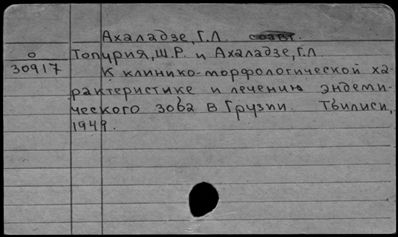 Ахаладзе, Г.Л. соавт.
о Топурия, Ш.Р. и Ахаладзе, Г.Л
30917 К клинико-морфологической ха-
рактеристике и лечению эндеми-
ческого зоба в Грузии. Тбилиси,
1949.